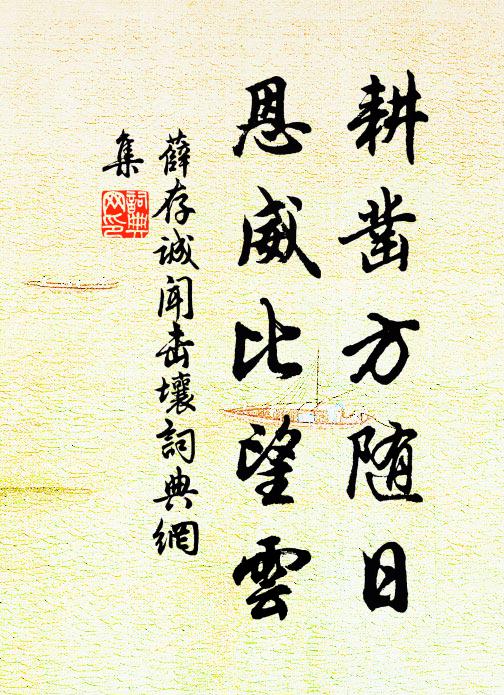 耕凿方随日
恩威比望雲
薛存诚闻击壤詞典網
集
詞典
网印